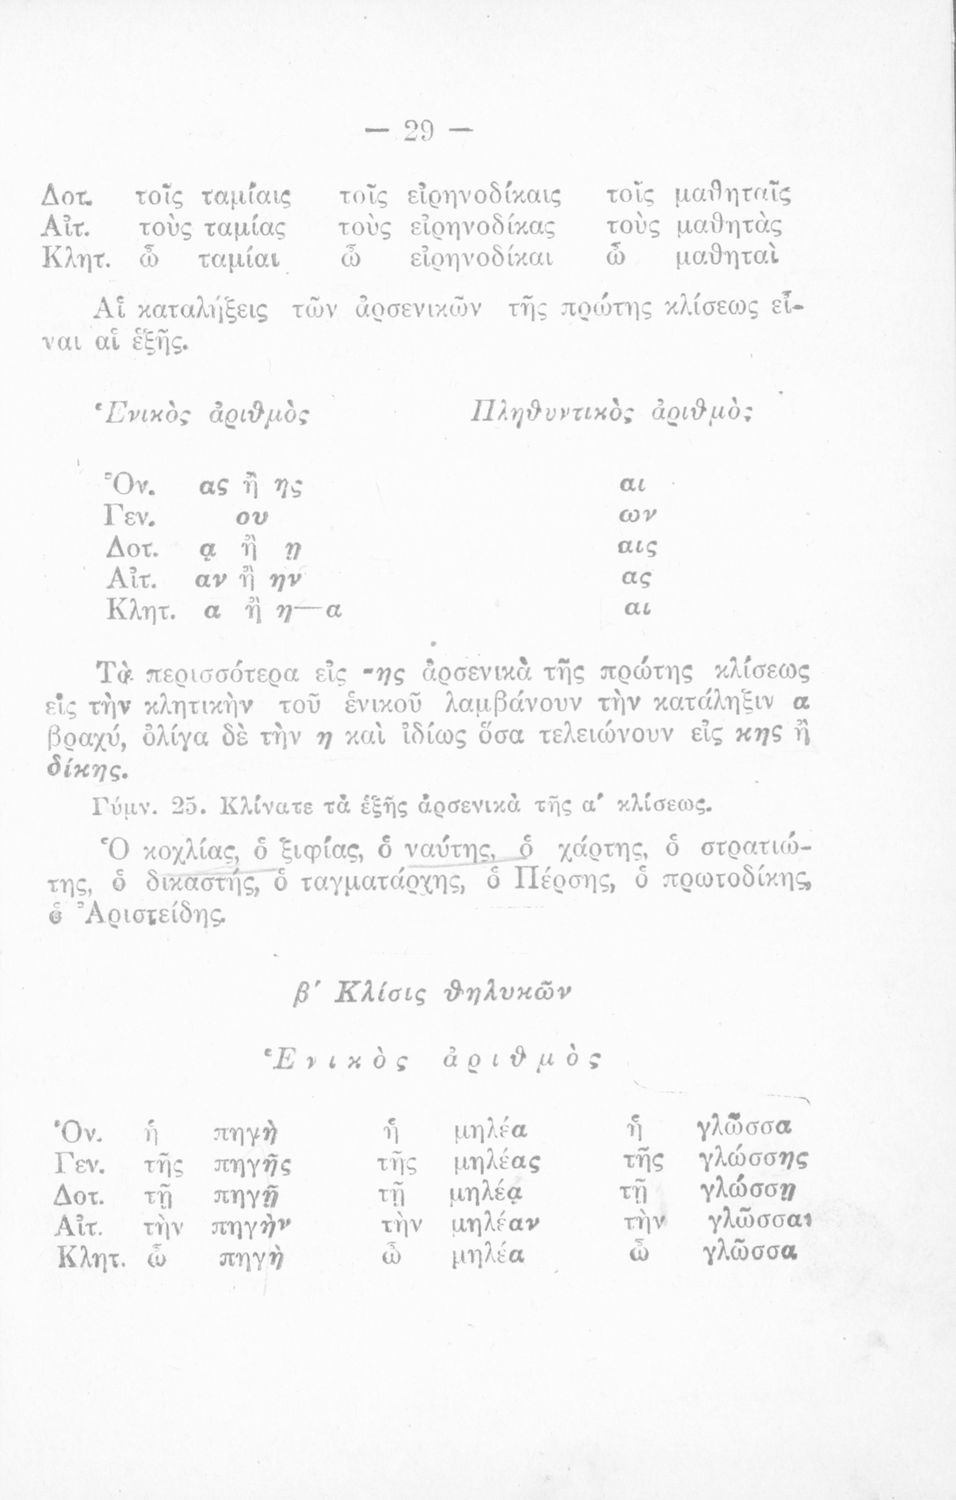 — 29 —
Δοτ. τοῖς ταμίαις τοῖς εἰρηνοδίκαις τοῖς μαθηταῖς
Αἰτ. τοὺς ταμίας τοὺς εἰρηνοδίκας τοὺς μαθητὰς
Κλητ. ὦ ταμίαι ὦ εἰρηνοδίκαι ὦ μαθηταὶ
Αἱ καταλήξεις τῶν ἀρσενικῶν τῆς πρώτης κλίσεως εἶ-
ναι αἱ ἑξῆς.
Ἑνικὸς ἀριθμὸς Πληθυντικὸς ἀριθμὸς
Ὀν. ας ἢ ης αι
Γεν. ου ων
Δοτ. ᾳ ἢ ῃ αις
Αἰτ. αν ἢ ην ας
Κλητ. α ἢ η—α αι
Τὰ περισσότερα εἰς -ης ἀρσενικὰ τῆς πρώτης κλίσεως
εἰς τὴν κλητικὴν τοῦ ἑνικοῦ λαμβάνουν τὴν κατάληξιν α
βραχύ, ὀλίγα δὲ τὴν η καὶ ἰδίως ὅσα τελειώνουν εἰς κης ἢ
δίκης.
Γύμν. 25. Κλίνατε τὰ ἑξῆς ἀρσενικὰ τῆς α′ κλίσεως.
Ὁ κοχλίας, ὁ ξιφίας, ὁ ναύτης, ὁ χάρτης, ὁ στρατιώ-
της, ὁ δικαστής, ὁ ταγματάρχης, ὁ Πέρσης, ὁ πρωτοδίκης,
ὁ Ἀριστείδης.
β′ Κλίσις θηλυκῶν
Ἑνικὸς ἀριθμὸς
Ὀν. ἡ πηγὴ ἡ μηλέα ἡ γλῶσσα
Γεν. τῆς πηγῆς τῆς μηλέας τῆς γλώσσης
Δοτ. τῇ πηγῇ τῇ μηλέᾳ τῇ γλώσσῃ
Αἰτ. τὴν πηγὴν τὴν μηλέαν τὴν γλῶσσαν
Κλητ. ὦ πηγὴ ὦ μηλέα ὦ γλῶσσα